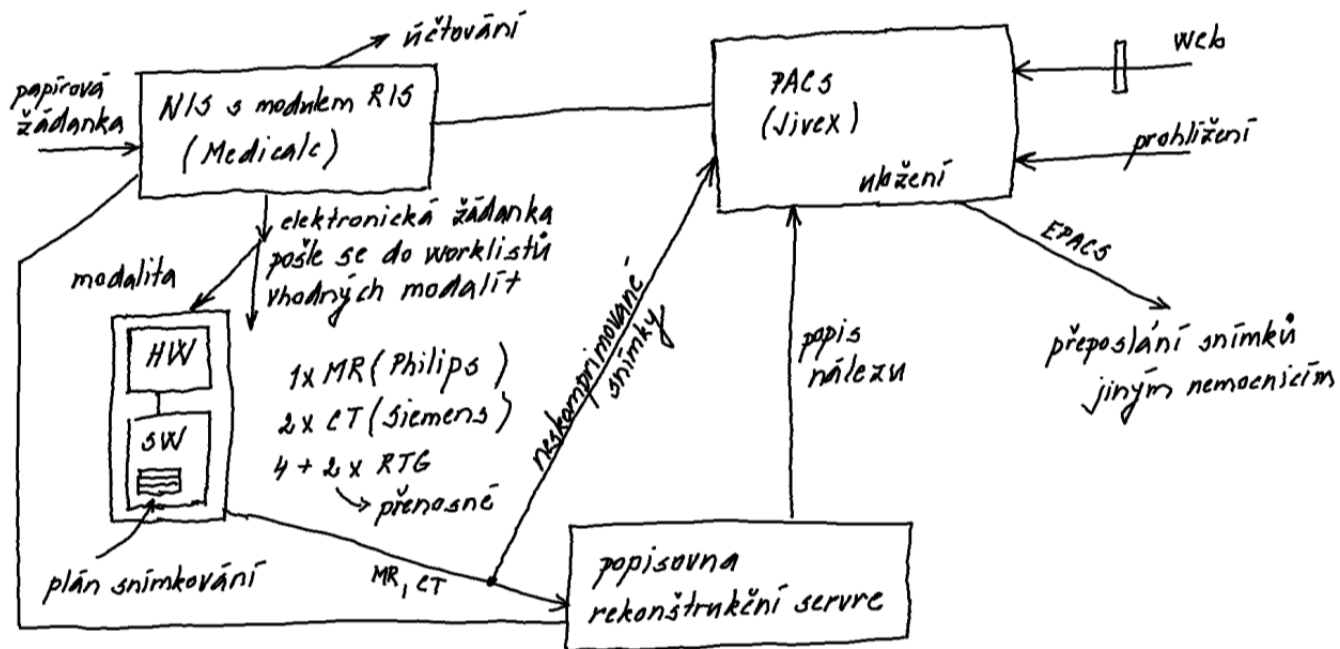 účtování
papírová
žádanka
NIS s modulem RIS
(Medicalc)
PACS
(Jivex)
uložení
web
prohlížení
EPACS
přeposlání snímků
jiným nemocnicím
elektronická žádanka
pošle se do worklistů
vhodných modalít
modalita
HW
SW
plán snímkování
1x MR (Philips)
2x CT (Siemens)
4 + 2x RTG
přenosné
neskomprimované
snímky
popis
nálezu
MR, CT
popisovna
rekonštrukční servre